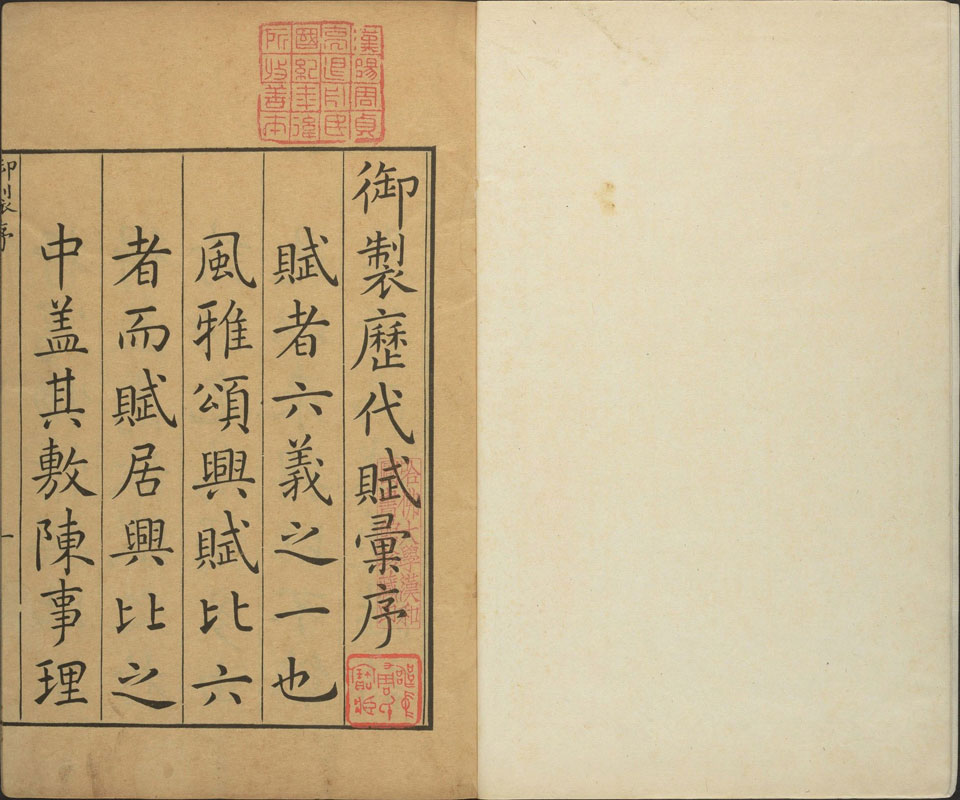 御製歷代賦彙序
賦者六義之一也
風雅頌興賦比六
者而賦居興比之
中盖其敷陳事理
御製序
一
漢陽周貞
亮退舟民
國紀年後
所收善本
哈佛大學漢和